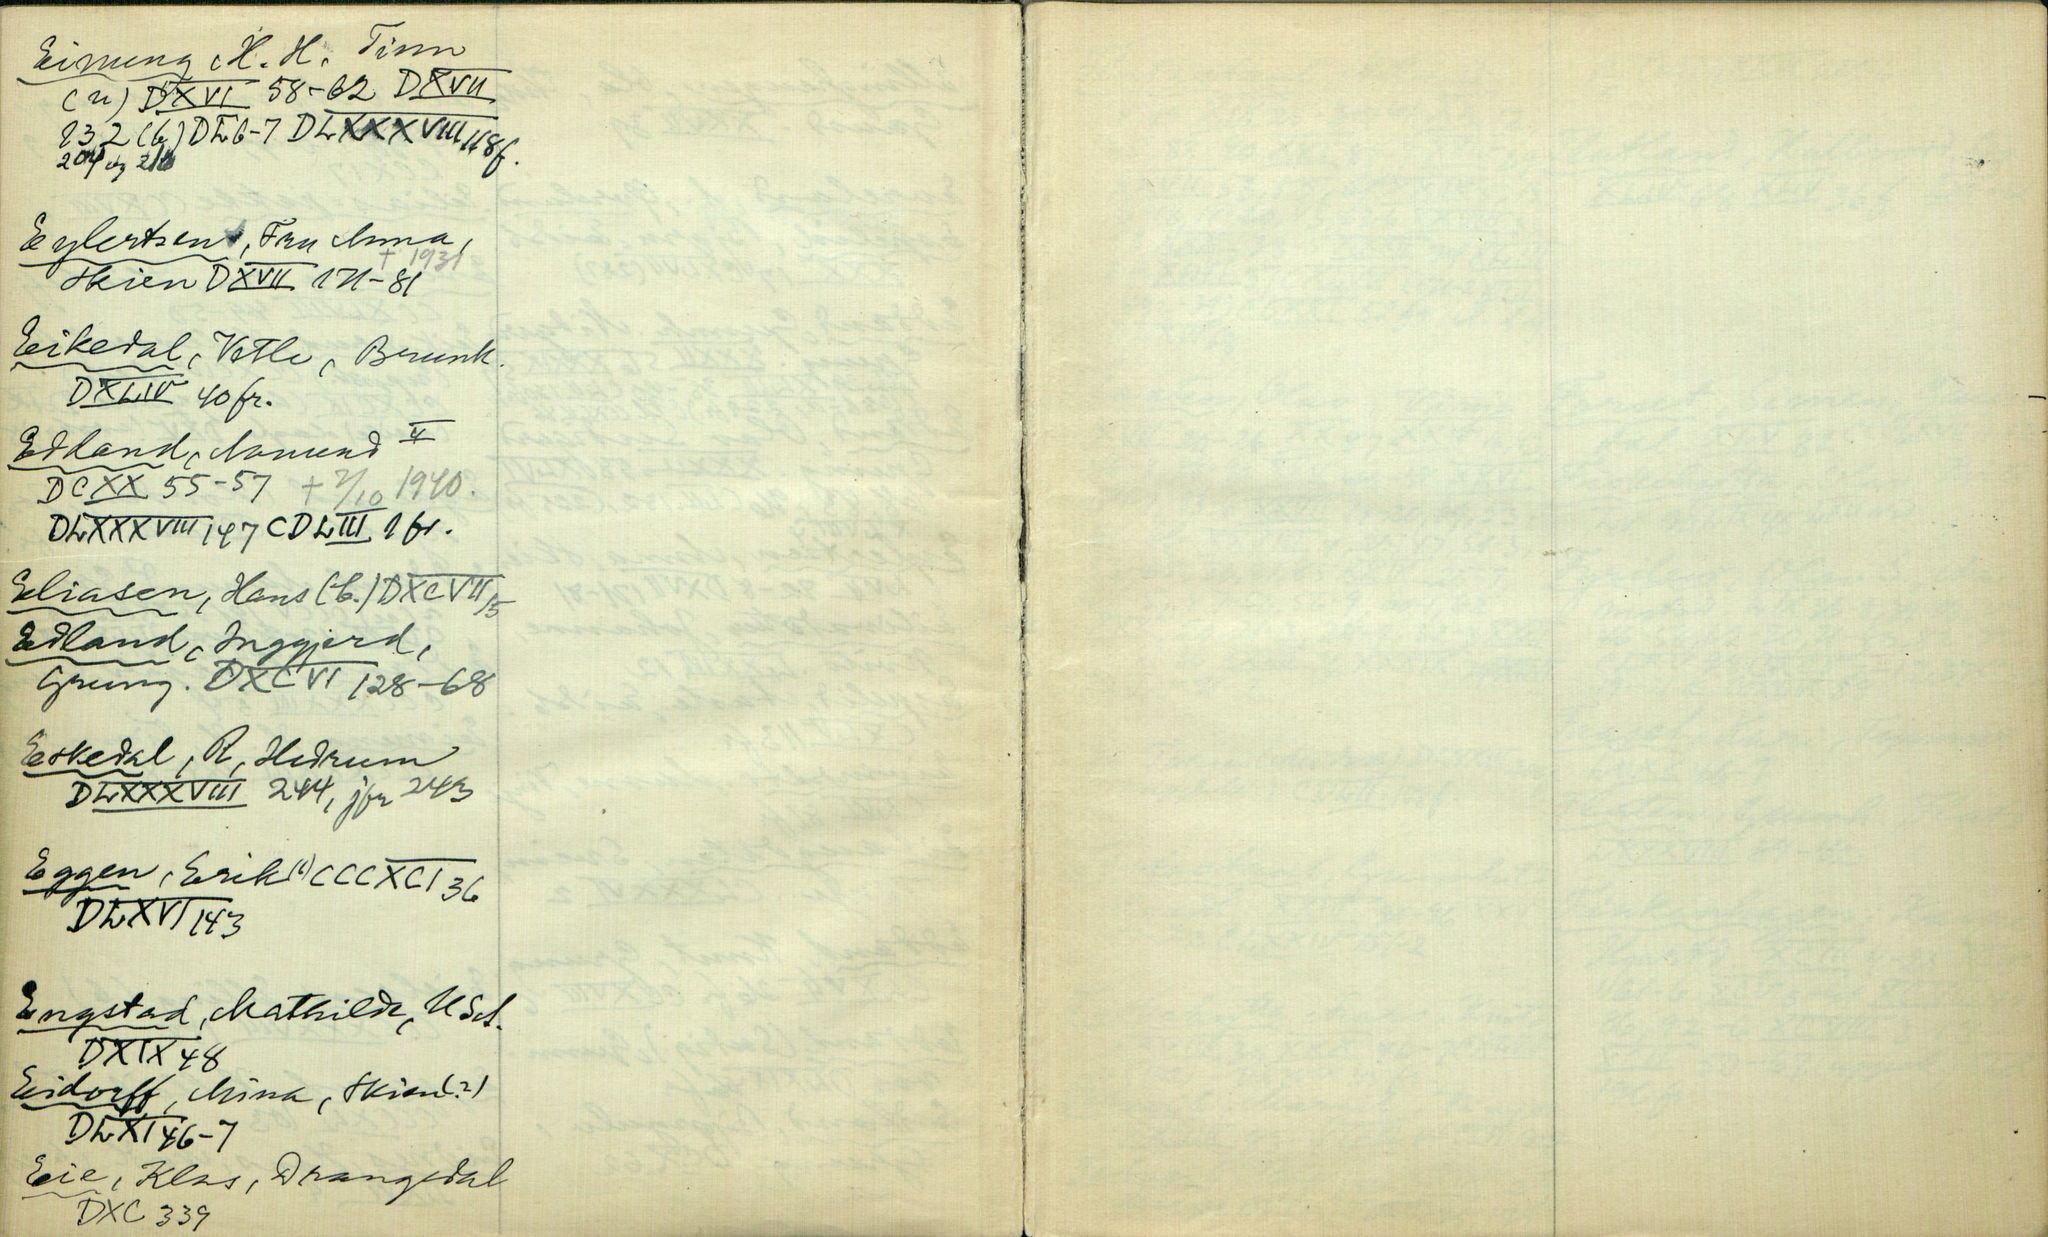 Einung, H. H. Tinn
(n) DXVI 58-62 DXVII
132 (b) DL 6-7 DLXXXVIII 118f.
204 og 216
Eylertsen, Fru Anna,
† 1931
Skien DXVII 171-81
Eikedal, Vetle, Brunk.
DXLIV 40fr.
Edland, Aamund II
DCXX 55-57 † 2/10 1940.
DLXXXVIII 147 CDLIII 1fr.
Eliasen, Hans (b.) DXCVII 15
Edland, Inggjerd,
Grung. DXCVI 128-68
Eskedal, R, Hedrum
DLXXXVIII 244, jfr 243
Eggen, Erik (b) CCCXCI 36
DLXVI 143
Engstad, Mathilde,
DXIX 48
Eidorff, Mina, Skien (?)
DLXI 46-7
Eie, Klas, Drangedal
DXC 339